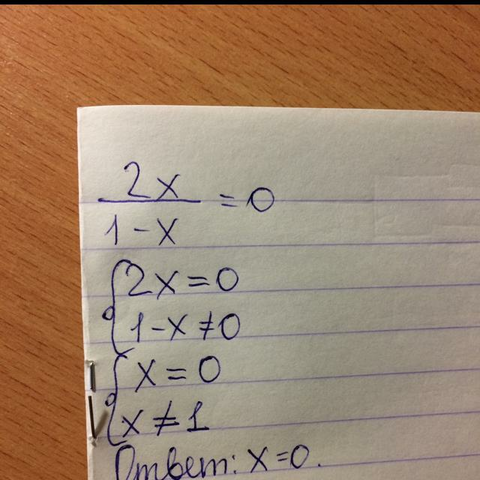 2x
―― = 0
1-x
{2x=0
{1-x≠0
{x=0
{x≠1
Ответ: x=0.